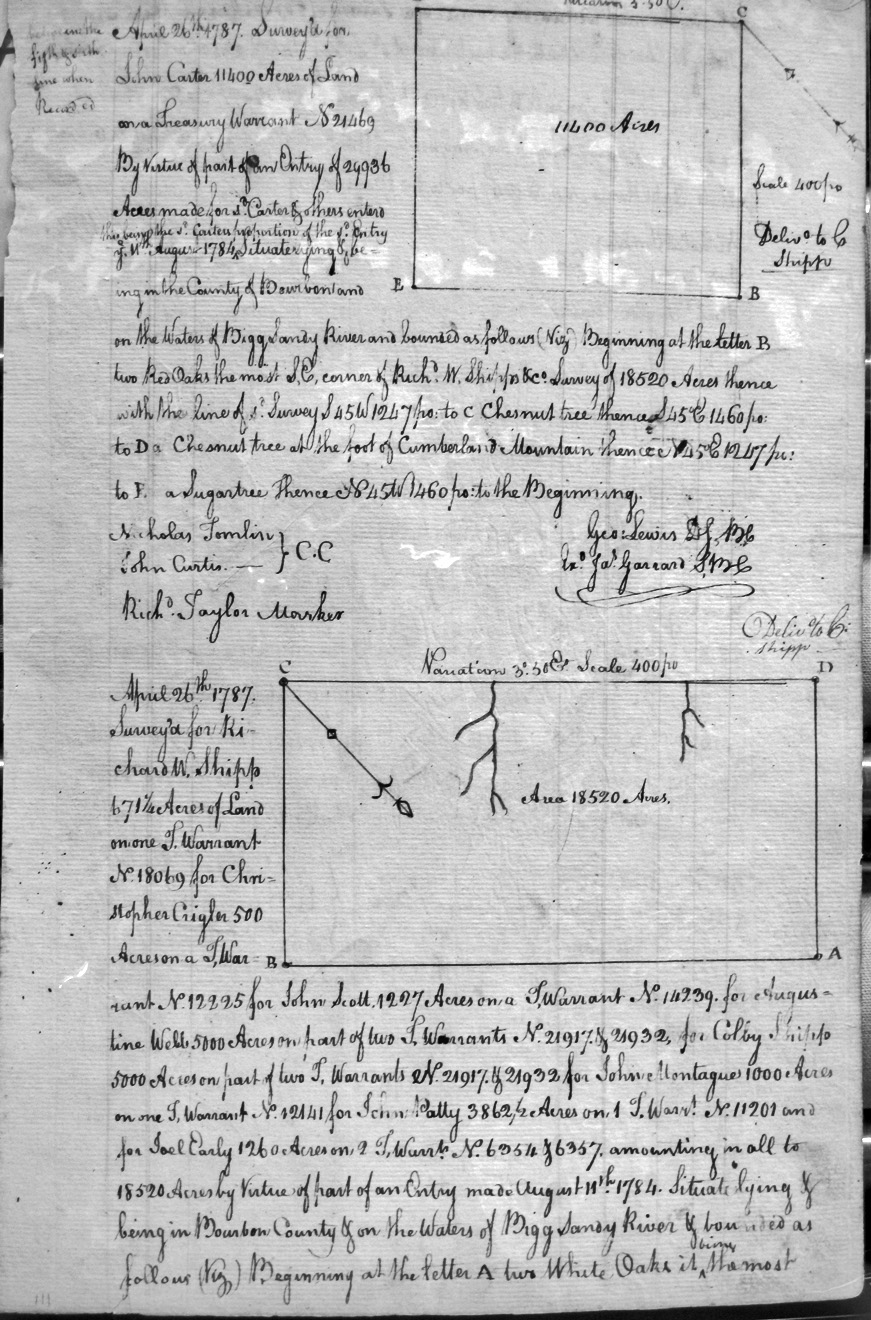 Variation 3°.50 E.
C
between the
fifth & sixth
line when
Record ed
April 26th 1787. Survey'd for
John Carter 11400 Acres of Land
on a Treasury Warrant No 21469
By Virtue of part of an Entry of 29936
Acres made for sd. Carter & others enterd
this being the sd. Carters proportion of the sd. Entry
ye. 11th August 1784, Situate lying & be=
ing in the County of Bourbon and
11400 Acres
Scale 400 po
Deliv'd to C
Shipp
E
B
on the Waters of Bigg Sandy River and bounded as follows (Viz) Beginning at the letter B
two Red Oaks the most S, E, corner of Richd. W. Shipps & Co. Survey of 18520 Acres thence
with the line of sd. Survey S 45 W 1247 po: to C Chesnut tree thence S 45 E 1460 po:
to D a Chesnut tree at the foot of Cumberland Mountain thence N 45 E 1247 po:
to E a Sugartree thence N 45 W 1460 po: to the Beginning.
Nicholas Tomlin
John Curtis. } C.C
Geo: Lewis D.S. BC
Ja's. Garrard S.B.C
Richd. Taylor Marker
Deliv'd to C:
Shipp
C
Variation 3°.50 E. Scale 400 po
D
April 26th 1787.
Survey'd for Ri-
chard W. Shipp
671¼ Acres of Land
on one T. Warrant
No. 18069 for Chri=
stopher Crigler 500
Acres on a T, War=
Area 18520 Acres.
B
A
rant No. 12225 for John Scott, 1227 Acres on a T, Warrant No. 14239. for Augus=
tine Webb 5000 Acres on part of two T, Warrants No. 21917. & 21932, for Colby Shipp
5000 Acres on part of two T, Warrants No. 21917. & 21932 for John Montague 1000 Acres
on one T, Warrant No. 12141 for John Patty 3862½ Acres on 1 T. Warrt. No. 11201 and
for Joel Early 1260 Acres on 2 T, Warrts. No. 6354 & 6357. amounting in all to
18520 Acres by Virtue of part of an Entry made August 11th. 1784. Situate lying &
being in Bourbon County & on the Waters of Bigg Sandy River & bounded as
being
follows (Viz) Beginning at the letter A two White Oaks it ^ the most